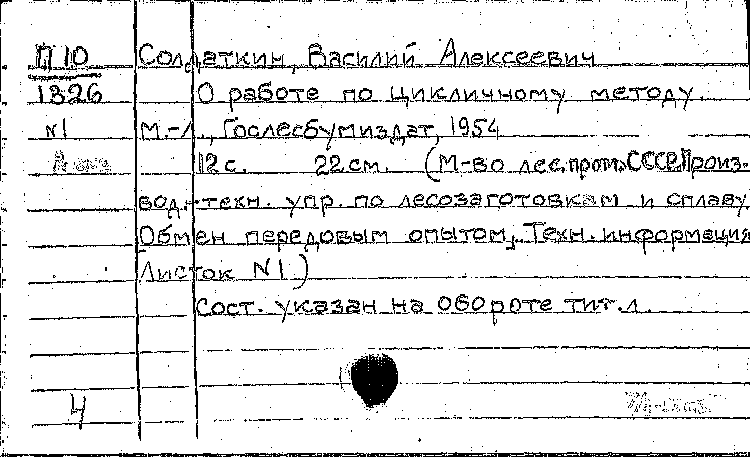 П 10 Солдаткин, Василий Алексеевич
1326 О работе по цикличному методу.
N1 М.-Л., Гослесбумиздат, 1954
12 с. 22 см. (М-во лес.пром.СССР.Произ-
вод.-техн. упр. по лесозаготовкам и сплаву
Обмен передовым опытом, Техн. информация
Листок N1)
Сост. указан на обороте тит. л.
4